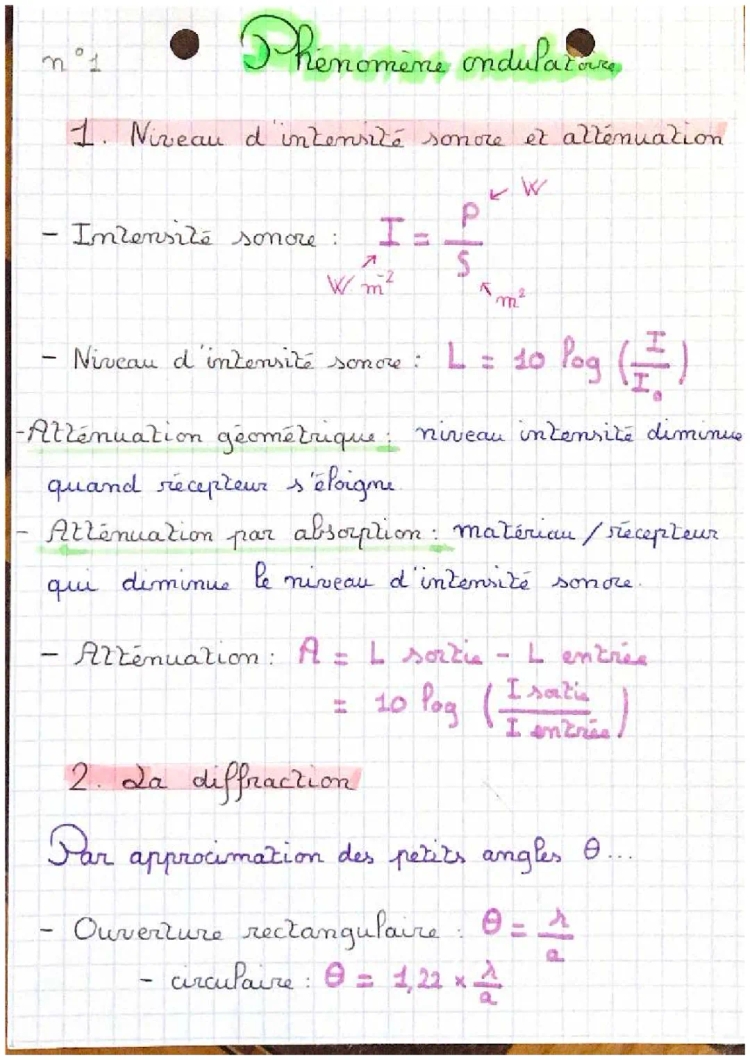 n°1 Phénomène ondulatoire
1. Niveau d'intensité sonore et atténuation
- Intensité sonore : I = P / S
W
W m⁻²
m²
- Niveau d'intensité sonore : L = 10 log (I / I₀)
- Atténuation géométrique : niveau intensité diminue
quand récepteur s'éloigne.
- Atténuation par absorption : matériau / récepteur
qui diminue le niveau d'intensité sonore.
- Atténuation : A = L sortie - L entrée
= 10 log (I sortie / I entrée)
2. La diffraction
Par approcimation des petits angles θ...
- Ouverture rectangulaire : θ = λ / a
- circulaire : θ = 1,22 × λ / a